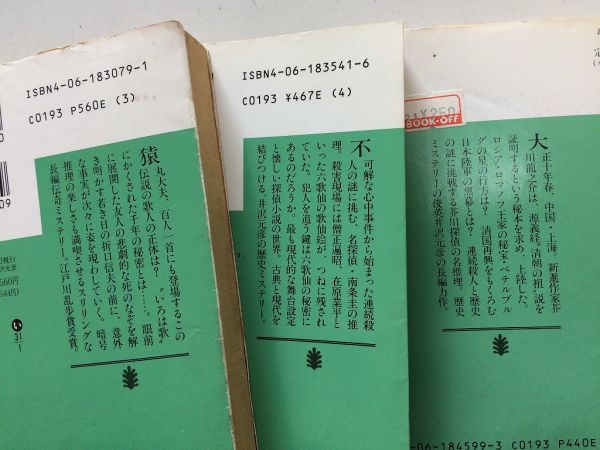 ISBN4-06-183079-1
C0193 P560E (3)
猿丸大夫、百人一首にも登場するこの
伝説の歌人の正体は？ "いろは歌"
にかくされた千年の秘密とは……。眼前
に展開した友人の悲劇的な死のなぞを解
き明かす若き日の折口信夫の前に、意外
な事実が次々に姿を現わしていく。暗号
推理の楽しさも満喫させるスリリングな
長編伝奇ミステリー。江戸川乱歩賞受賞。
560円
544円)
い
31
1
ISBN4-06-183541-6
C0193 ¥467E (4)
不可解な心中事件から始まった連続殺
人の謎に挑む、名探偵・南条圭の推
理。殺害現場には僧正遍昭、在原業平と
いった六歌仙の歌仙絵が、つねに残され
ていた。犯人を追う鍵は六歌仙の秘密に
あるのだろうか。最も現代的な舞台設定
と懐しい探偵小説の世界。古典と現代を
結びつける、井沢元彦の歴史ミステリー。
BOOK-OFF
大正十年春、中国・上海。新進作家芥
川龍之介は、源義経＝清朝の祖"説を
証明するという秘本を求め、上陸した。
ロシア・ロマノフ王家の秘宝・ペテルブル
グの星の行方は？ 清国再興をもくろむ
日本陸軍の黒幕とは？ 連続殺人と歴史
の謎に挑戦する芥川探偵の名推理。歴史
ミステリーの俊英井沢元彦の長編力作。
-06-184599-3 C0193 P440E